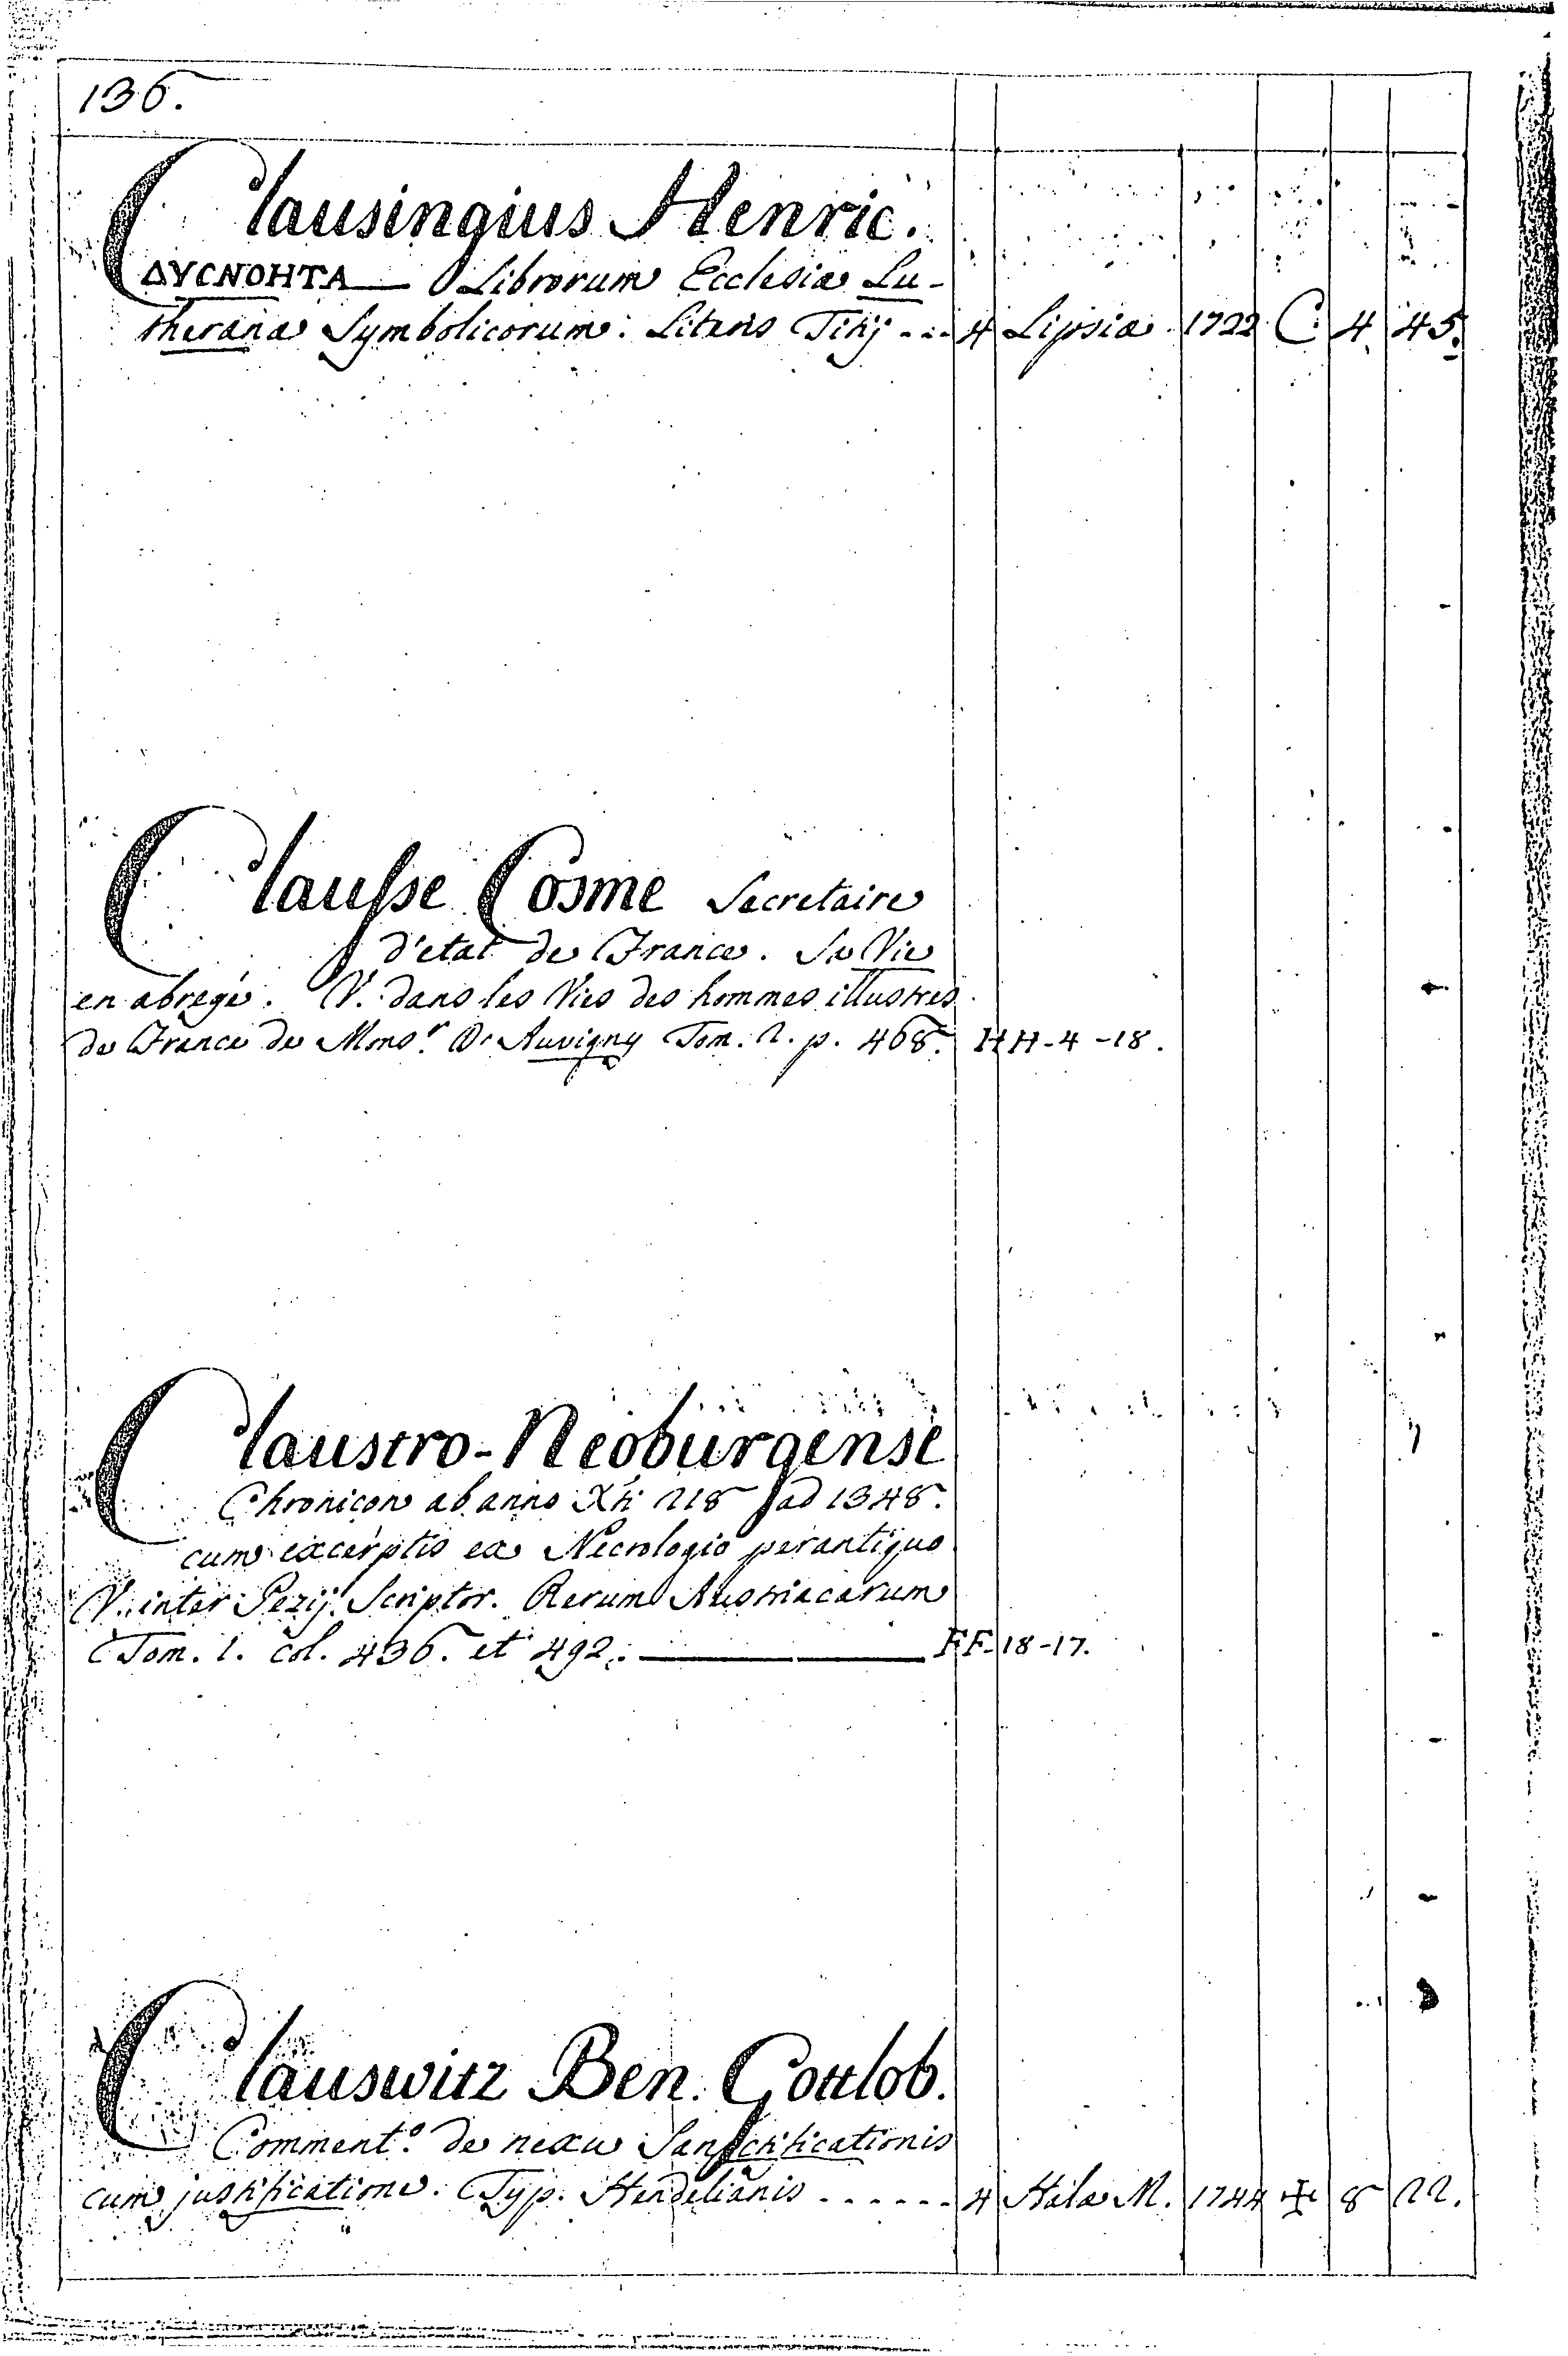 136.
Clausingius Henric.
ΔΥCΝΟΗΤΑ — Librorum Ecclesiæ Lu-
theranæ Symbolicorum. Literis Titij - - - 4 Lipsiæ. 1722 C. 4. 45.
Clausse Cosme Secretaire
d'etat de France. Sa Vie
en abregé. V. dans les Vies des hommes illustres
de France de Monsr. D'Auvigny Tom. 2. p. 468. HH-4-18.
Claustro-Neoburgense
Chronicon ab anno Xti 218 ad 1348.
cum excerptis ex Necrologio perantiquo
V. inter Pezij Scriptor. Rerum Austriacarum
Tom. 1. col. 436. et 492. — FF-18-17.
Clauswitz Ben. Gottlob.
Comment.o de nexu Sanctificationis
cum justificatione. Typ. Hendelianis . . . . . . 4 Halæ M. 1744 ✠ 8 22.